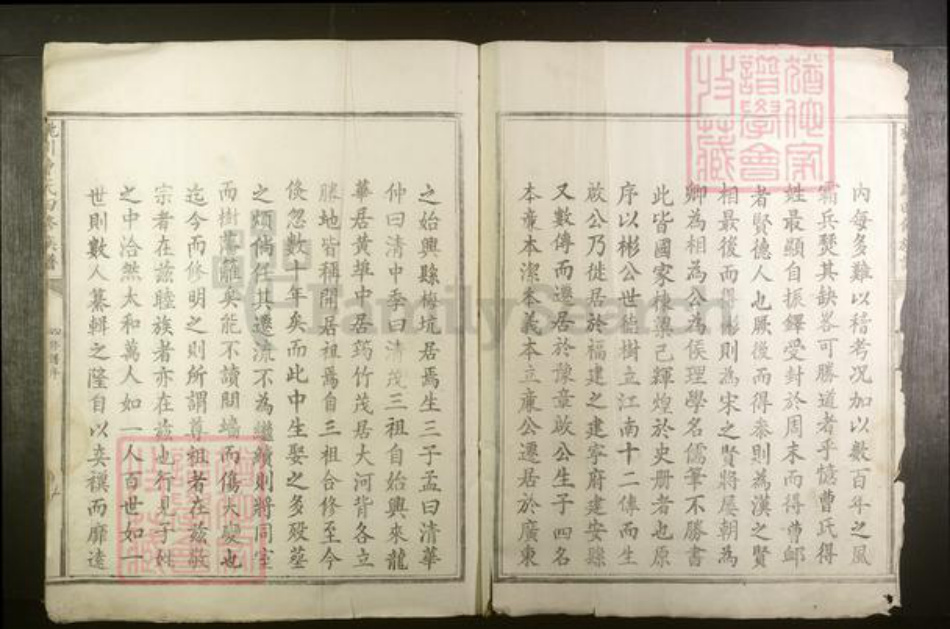 內每多難以稽考况加以數百年之風
霜兵燹其缺畧可勝道者乎憶曹氏得
姓最顯自振鐸受封於周末而得曹卹
者賢德人也厥後而得參則為漢之賢
相最後而得彬則為宋之賢將屢朝為
卿為相為公為侯理學名儒筆不勝書
此皆國家棟樑已輝煌於史册者也原
序以彬公世德樹立江南十二傳而生
啟公乃徙居於福建之建寧府建安縣
又數傳而遷居於豫章啟公生子四名
本童本潔本義本立公遷居於廣東
之始興縣梅坑居焉生三子孟曰清華
仲曰清中季曰清茂三祖自始興來龍
華居黃華中居筠竹茂居大河背各立
勝地皆稱開居祖焉自三祖合修至今
倏忽數十年矣而此中生娶之多殁塟
之煩倘任其遷流不為繼續則將同室
而樹籬矣能不讀鬩墻而傷大變也
迄今而修明之則所謂尊祖者在兹敬
宗者在兹睦族者亦在兹也行見子姓
之中洽然太和萬人如一人百世如一
世則數人纂輯之隆自以奕禩而靡遠
氏四修族譜
四修譜序
猶他家譜學會收藏
FamilySearch